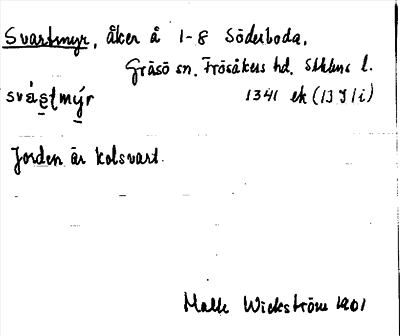 Svartmyr, åker å 1-8 Söderboda,
Gräsö sn. Frösåkers hd. Sthlms l.
1341 ek (13 I 1i)
Jorden är kolsvart.
Malle Wickström 1901